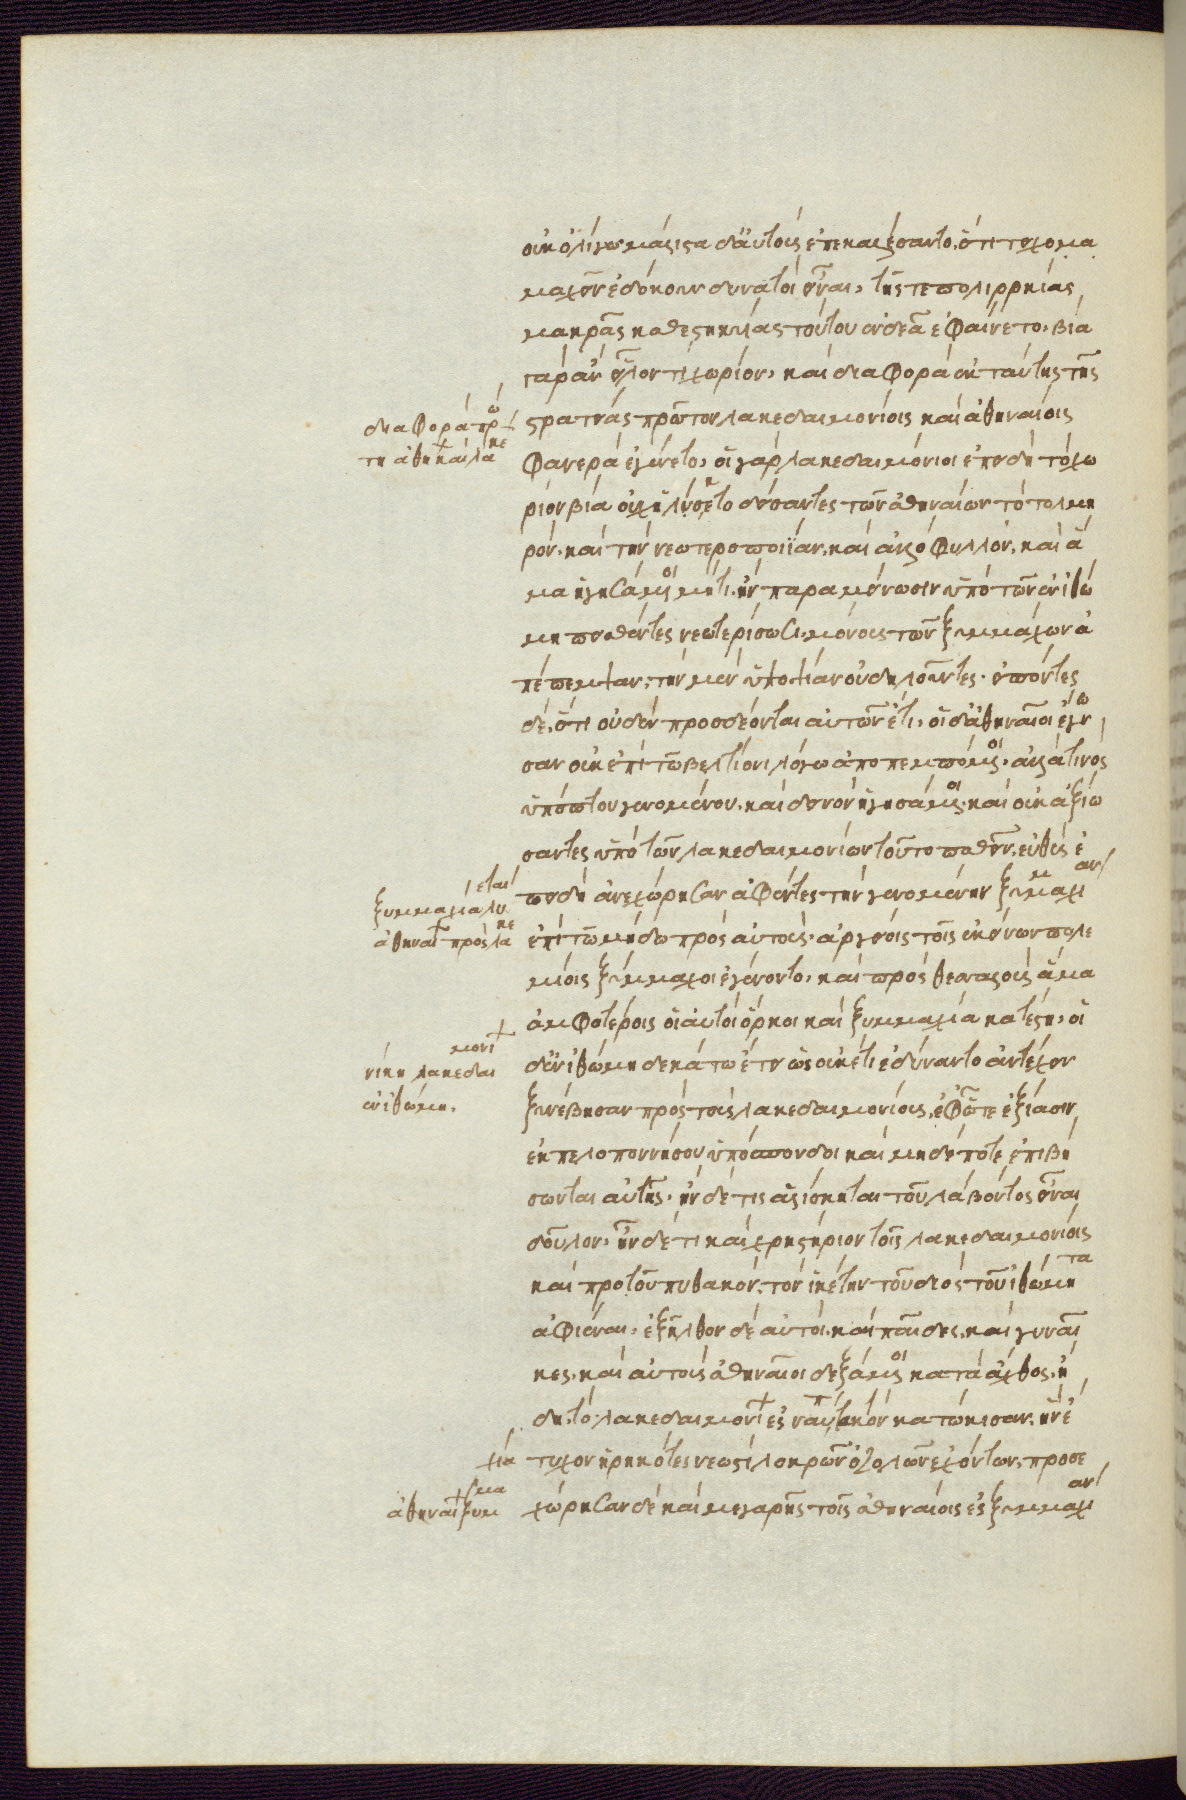 οὐκ ὀλίγω μάλιστα δ' αὐτοὺς ἐπεκαλέσαντο, ὅτι τειχομα
μαχεῖν ἐδόκουν δυνατοὶ εἶναι, τῆς τε πολιορκίας
μακρᾶς καθεστηκυίας τούτου ἐνδεᾶ ἐφαίνετο, βία
γὰρ ἂν εἷλον τὸ χωρίον, καὶ διαφορὰ ἐκ ταύτης τῆς
διαφορὰ πρώ
τη ἀθην καὶ λακε
στρατείας πρῶτον λακεδαιμονίοις καὶ ἀθηναίοις
φανερὰ ἐγένετο, οἱ γὰρ λακεδαιμόνιοι ἐπειδὴ τὸ χω
ρίον βία οὐχ ἡλίσκετο δείσαντες τῶν ἀθηναίων τὸ τολμη
ρὸν, καὶ τὴν νεωτεροποιΐαν, καὶ ἀλλόφυλλον, καὶ ἅ
μα ἡγησάμενοι μή τι, ἢν παραμένωσιν ὑπὸ τῶν ἐν ἰθώ
μη πεισθέντες νεωτερίσωσι, μόνους τῶν ξυμμάχων ἀ
πέπεμψαν, τὴν μὲν ὑποψίαν οὐ δηλοῦντες, εἰπόντες
δὲ, ὅτι οὐδὲν προσδέονται αὐτῶν ἔτι, οἱ δ' ἀθηναῖοι ἔγνω
σαν οὐκ ἐπὶ τῶ βελτίονι λόγω ἀποπεμπόμενοι, ἀλλά τινος
ὑπόπτου γενομένου, καὶ δεινὸν ἡγησάμενοι, καὶ οὐκ ἀξιώ
σαντες ὑπὸ τῶν λακεδαιμονίων τοῦτο παθεῖν, εὐθὺς ἐ
ξυμμαχία λύεται
ἀθηναί πρὸς λακε
πειδὴ ἀνεχώρησαν ἀφέντες τὴν γενομένην ξυμμαχίαν
ἐπὶ τῶ μήδω πρὸς αὐτοὺς, ἀργείοις τοῖς ἐκείνων πολε
μίοις ξύμμαχοι ἐγένοντο, καὶ πρὸς θεσσαλοὺς ἅμα
ἀμφοτέροις οἱ αὐτοὶ ὅρκοι καὶ ξυμμαχία κατέστη, οἱ
νίκη λακεδαιμονί
ἐν ἰθώμη.
δ' ἐν ἰθώμη δεκάτω ἔτει ὡς οὐκέτι ἐδύναντο ἀντέχειν
ξυνέβησαν πρὸς τοὺς λακεδαιμονίους, ἐφ' ὧτε ἐξίασιν
ἐκ πελοποννήσου ὑπόσπονδοι καὶ μηδέποτε ἐπιβή
σωνται αὐτῆς, ἢν δέ τις ἁλίσκηται τοῦ λαβόντος εἶναι
δοῦλον, ἦν δέ τι καὶ χρηστήριον τοῖς λακεδαιμονίοις
καὶ προτοῦ πυθικὸν, τὸν ἱκέτην τοῦ διὸς τοῦ ἰθωμήτα
ἀφιέναι, ἐξῆλθον δὲ αὐτοὶ, καὶ παῖδες, καὶ γυναῖ
κες, καὶ αὐτοὺς ἀθηναῖοι δεξάμενοι κατὰ ἔχθος, ἤ
δη, τὸ, λακεδαιμονί ἐς ναύπακτον κατώκισαν, ἣν ἔ
τυχον ἡρηκότες νεωστὶ λοκρῶν ὀζολῶν ἐχόντων, προσε
ἀθηναί ξυμμαχία
χώρησαν δὲ καὶ μεγαρῆς τοῖς ἀθηναίοις ἐς ξυμμαχίαν